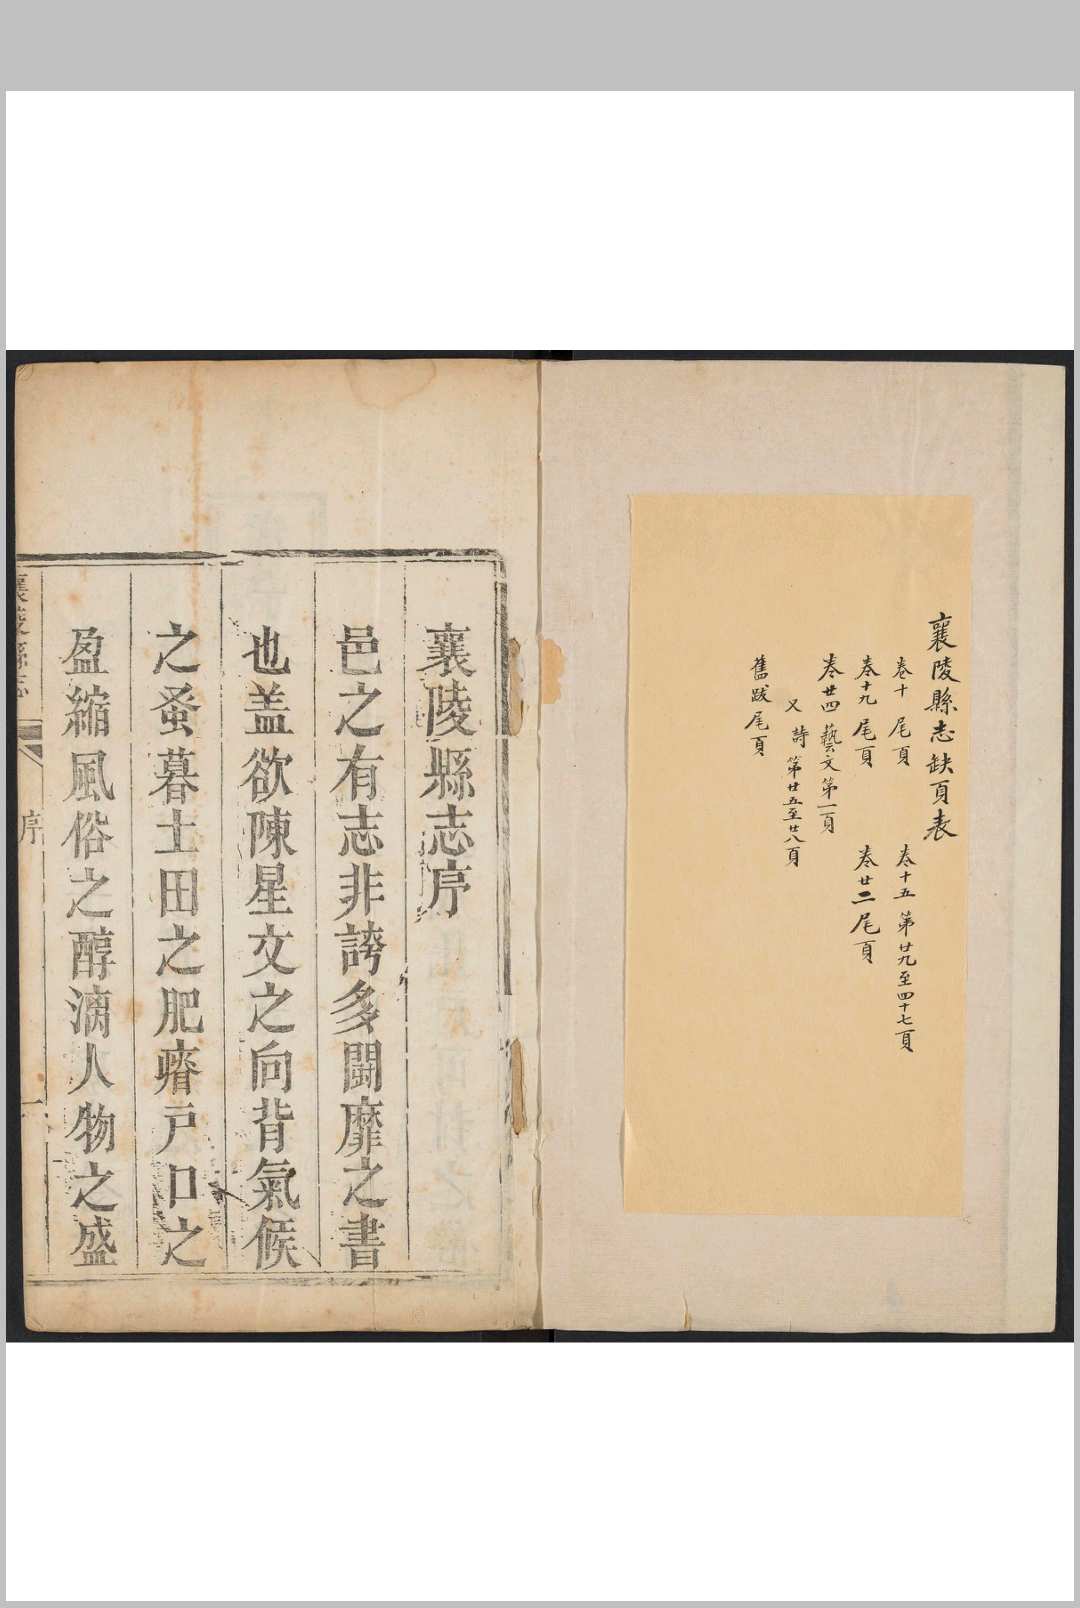 襄陵縣志缺頁表
卷十 尾頁 卷十五 第廿九至四十七頁
卷十九 尾頁 卷廿二 尾頁
卷廿四 藝文第一頁
又 詩 第廿五至廿八頁
舊跋尾頁
襄陵縣志序
邑之有志非誇多鬪靡之書
也盖欲陳星文之向背氣候
之蚤暮土田之肥瘠戸口之
盈縮風俗之醇漓人物之盛
襄陵縣志 序 一